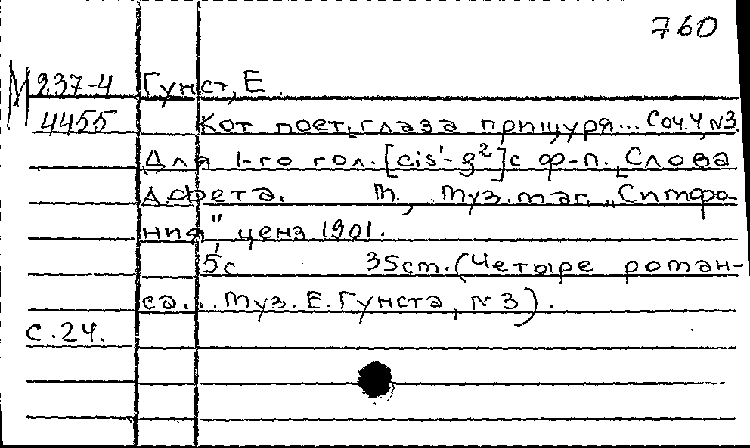 760
М 237-4 Гунст, Е.
4455 Кот поет, глаза прищуря... Соч. 4, №3.
Для 1-го гол. [cis¹-g²] с ф-п. Слова
А. Фета. М., Муз. маг. „Симфо-
ния", ценз 1901.
5с 35см. (Четыре роман-
са... Муз. Е. Гунста, №3).
с. 24.